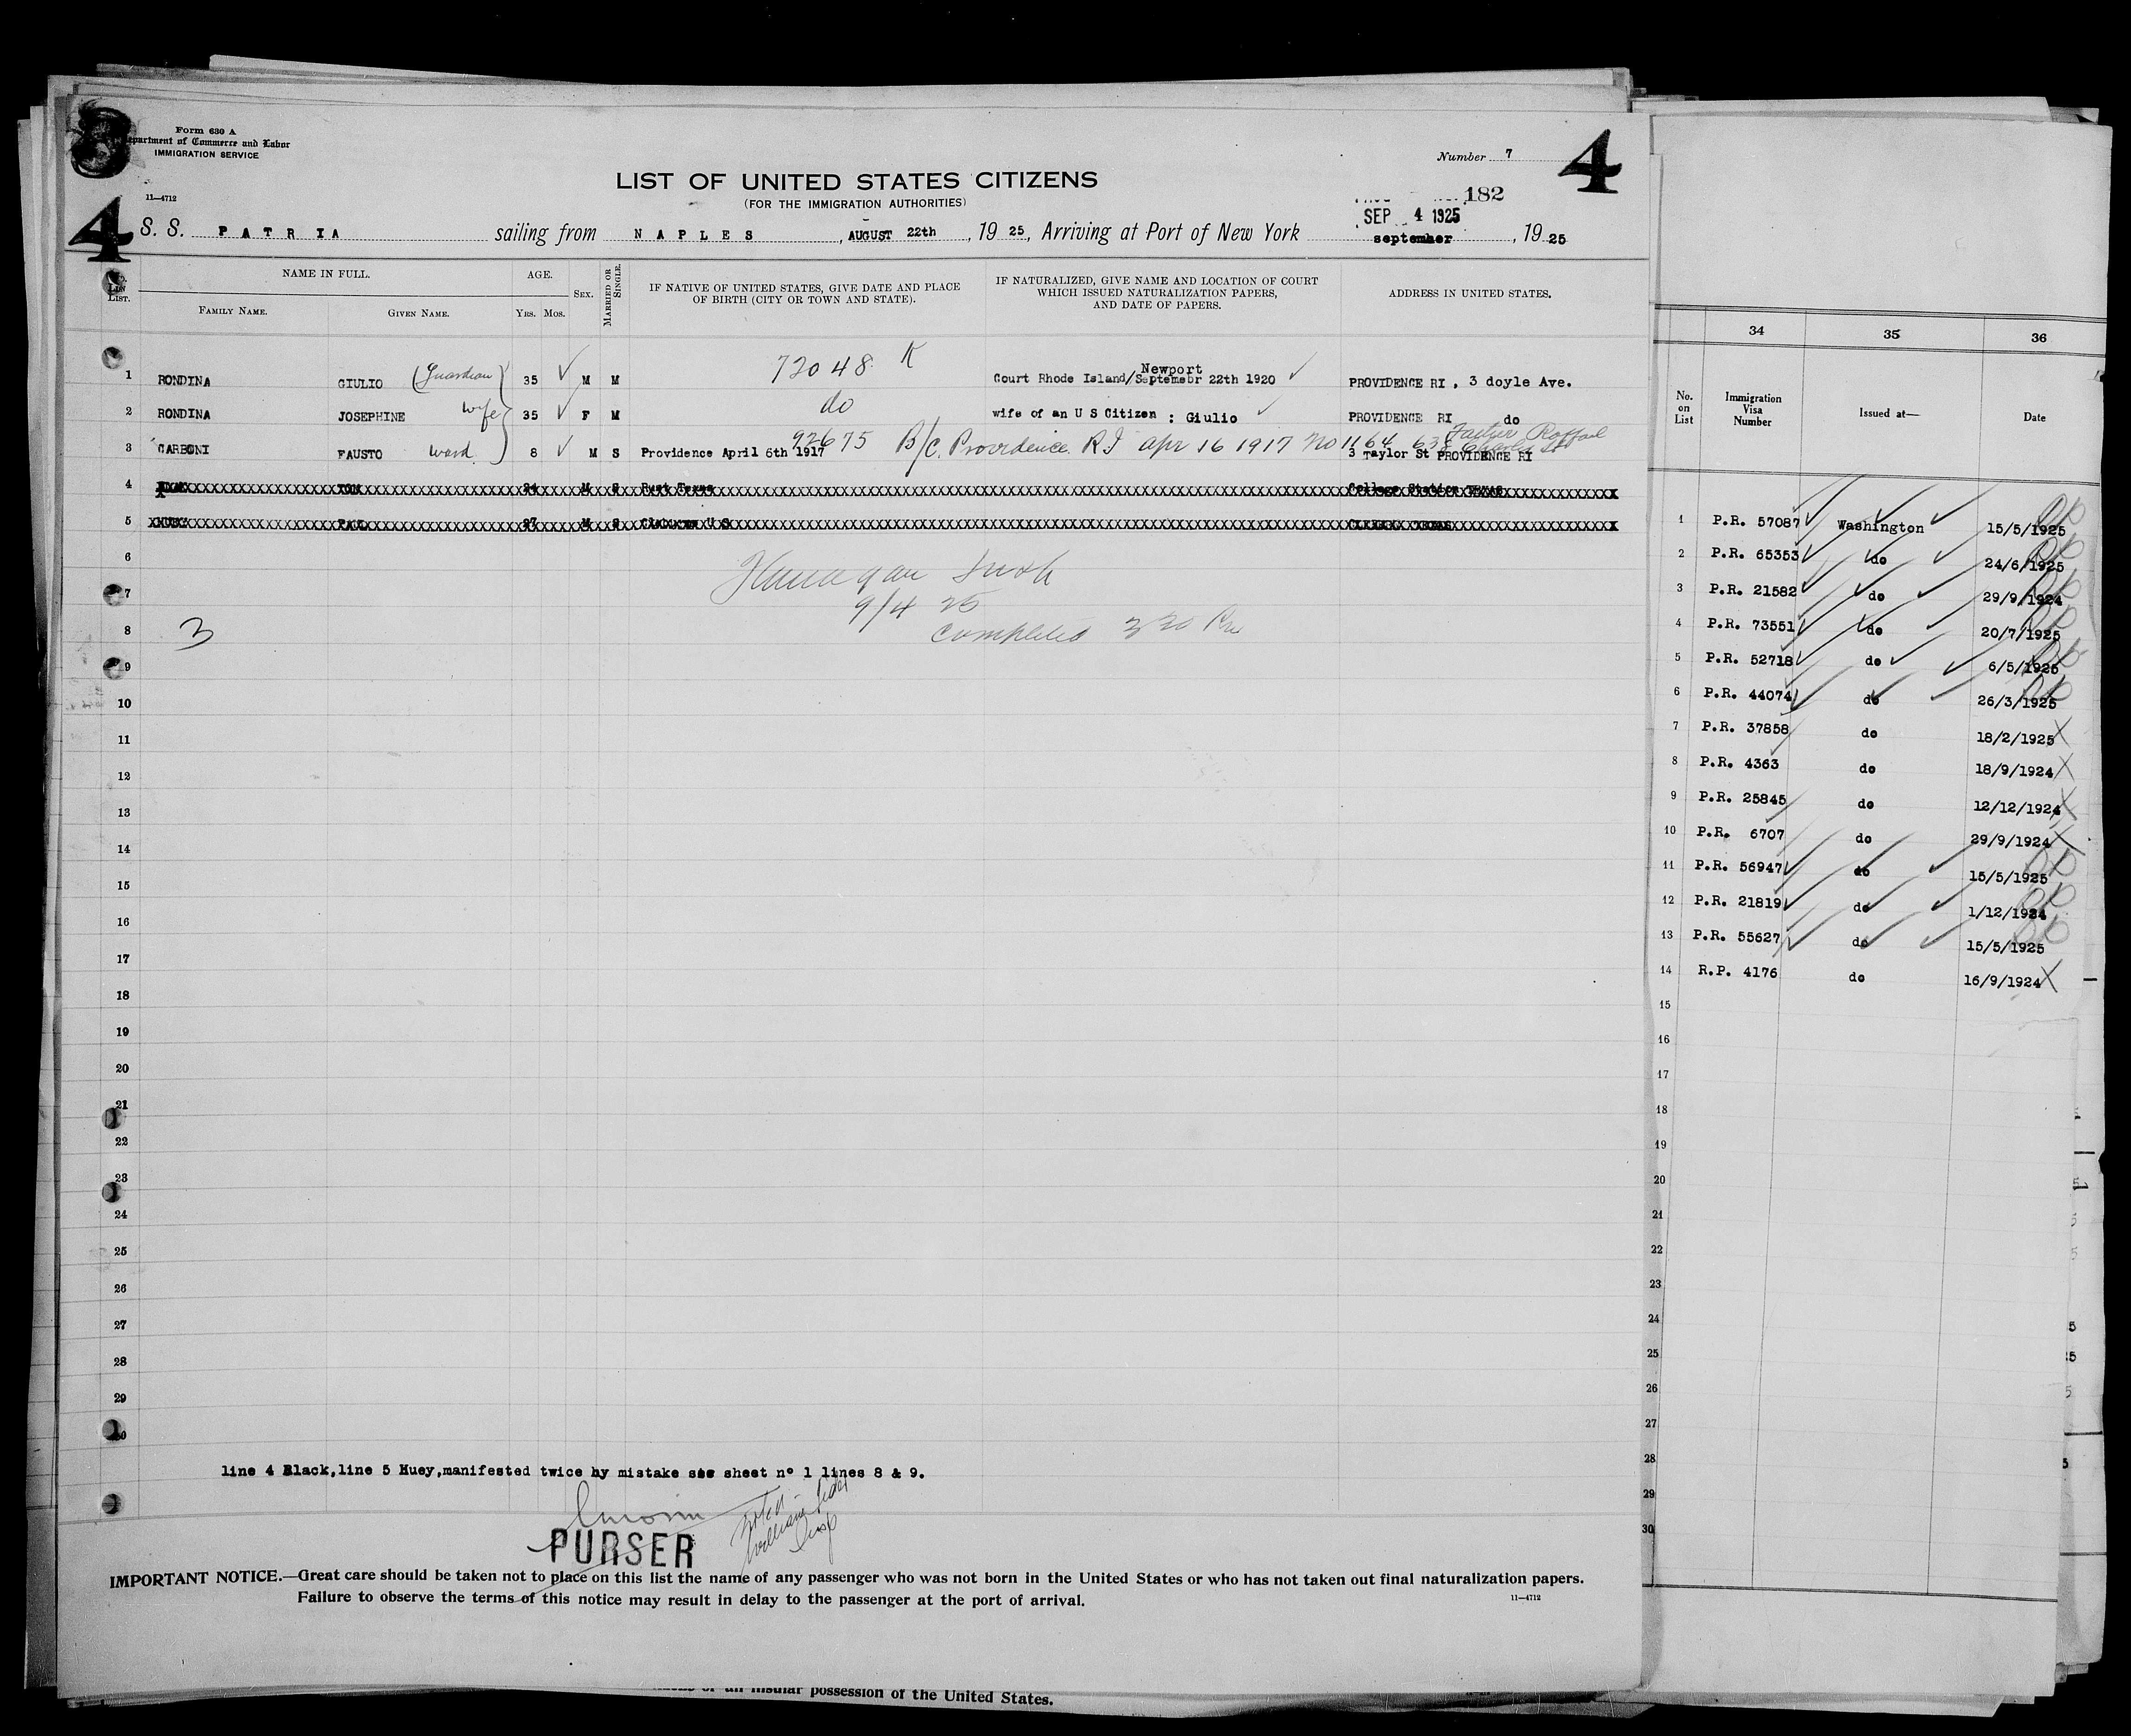 8
4
Form 630 A
Department of Commerce and Labor
IMMIGRATION SERVICE
11—4712
Number 7
4
LIST OF UNITED STATES CITIZENS
(FOR THE IMMIGRATION AUTHORITIES)
182
SEP 4 1925
S. S. PATRIA sailing from NAPLES, AUGUST 22th, 1925, Arriving at Port of New York september, 1925
No. on List.
NAME IN FULL.
FAMILY NAME.
GIVEN NAME.
AGE.
YRS. MOS.
SEX.
MARRIED OR SINGLE.
IF NATIVE OF UNITED STATES, GIVE DATE AND PLACE OF BIRTH (CITY OR TOWN AND STATE).
IF NATURALIZED, GIVE NAME AND LOCATION OF COURT WHICH ISSUED NATURALIZATION PAPERS, AND DATE OF PAPERS.
ADDRESS IN UNITED STATES.
72048 K
Newport
1 RONDINA GIULIO (Guardian 35 M M Court Rhode Island/Septemebr 22th 1920 PROVIDENCE RI, 3 doyle Ave.
2 RONDINA JOSEPHINE wife 35 F M do wife of an U S Citizen : Giulio PROVIDENCE RI do
92675 B/C. Providence. R I apr 16 1917 No 1164 Father Raffael
3 CARBONI FAUSTO ward 8 M S Providence April 6th 1917 3 Taylor St PROVIDENCE RI
4 TOM 24 M S Rust Texas College Station TEXAS
5 HUEY PAUL 27 M S U S TEXAS
6
7
9/4 25
8
3
completed 3 30 Pm
9
10
11
12
13
14
15
16
17
18
19
20
21
22
23
24
25
26
27
28
29
30
line 4 Black, line 5 Huey, manifested twice by mistake see sheet n° 1 lines 8 & 9.
PURSER
noted
William
Insp
IMPORTANT NOTICE.—Great care should be taken not to place on this list the name of any passenger who was not born in the United States or who has not taken out final naturalization papers.
Failure to observe the terms of this notice may result in delay to the passenger at the port of arrival.
11—4712
an insular possession of the United States.
34 35 36
No. on List
Immigration Visa Number
Issued at—
Date
1 P.R. 57087 Washington 15/5/1925
2 P.R. 65353 do 24/6/1925
3 P.R. 21582 do 29/9/1924
4 P.R. 73551 do 20/7/1925
5 P.R. 52718 do 6/5/1925
6 P.R. 44074 do 26/3/1925
7 P.R. 37858 do 18/2/1925
8 P.R. 4363 do 18/9/1924
9 P.R. 25845 do 12/12/1924
10 P.R. 6707 do 29/9/1924
11 P.R. 56947 do 15/5/1925
12 P.R. 21819 do 1/12/1924
13 P.R. 55627 do 15/5/1925
14 R.P. 4176 do 16/9/1924
15
16
17
18
19
20
21
22
23
24
25
26
27
28
29
30